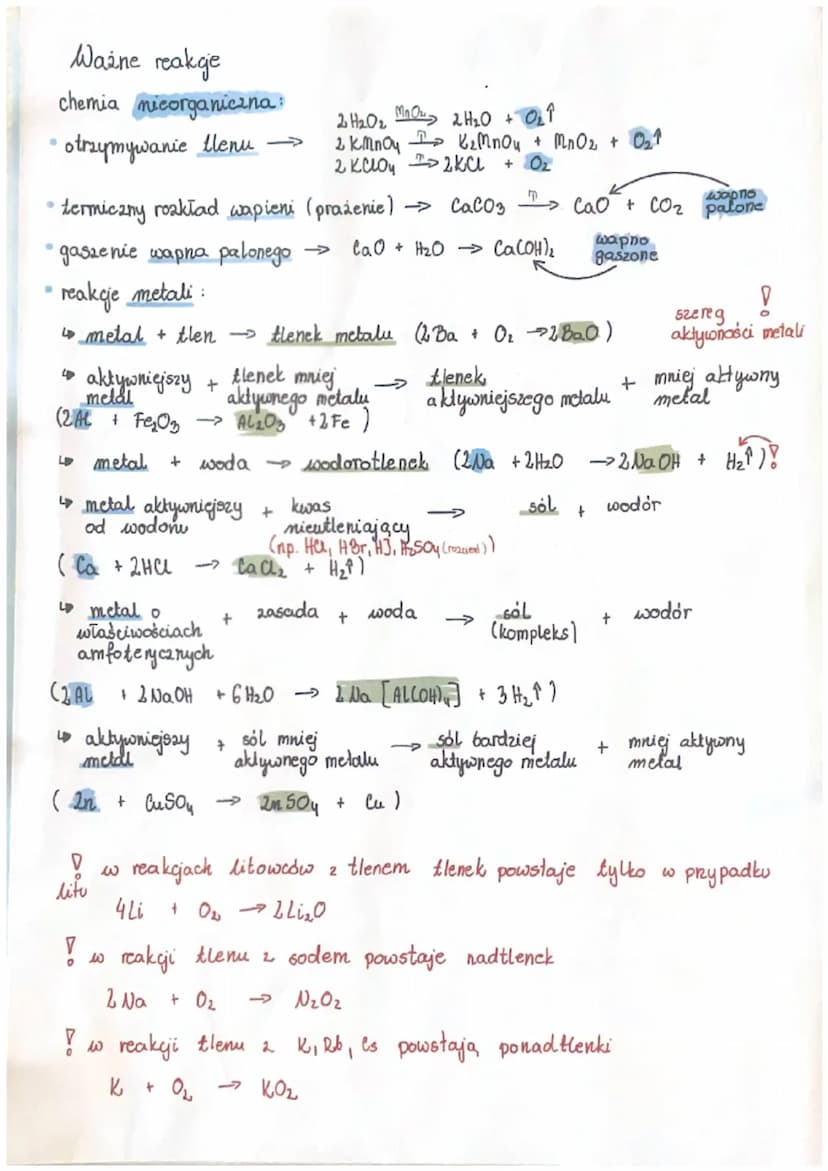 Ważne reakcje
chemia nieorganiczna:
• otrzymywanie tlenu → 2 H2O2 MnO2→ 2 H2O + O2↑
2 KMnO4 T→ K2MnO4 + MnO2 + O2↑
2 KClO4 T→ 2 KCl + O2
• termiczny rozkład wapieni (prażenie) → CaCO3 T→ CaO + CO2 wapno palone
• gaszenie wapna palonego → CaO + H2O → Ca(OH)2 wapno gaszone
• reakcje metali:
szereg !
aktywności metali
↳ metal + tlen → tlenek metalu (2 Ba + O2 → 2 BaO)
↳ aktywniejszy metal + tlenek mniej aktywnego metalu → tlenek aktywniejszego metalu + mniej aktywny metal
(2 Al + Fe2O3 → Al2O3 + 2 Fe)
↳ metal + woda → wodorotlenek (2 Na + 2 H2O → 2 NaOH + H2↑)!
↳ metal aktywniejszy od wodoru + kwas nieutleniający → sól + wodór
(np. HCl, HBr, HJ, H2SO4 (rozcień))
(Ca + 2HCl → CaCl2 + H2↑)
↳ metal o właściwościach amfoterycznych + zasada + woda → sól (kompleks) + wodór
(2 Al + 2 NaOH + 6 H2O → 2 Na [Al(OH)4] + 3 H2↑)
↳ aktywniejszy metal + sól mniej aktywnego metalu → sól bardziej aktywnego metalu + mniej aktywny metal
(Zn + CuSO4 → ZnSO4 + Cu)
! w reakcjach litowców z tlenem tlenek powstaje tylko w przypadku
litu
4 Li + O2 → 2 Li2O
! w reakcji tlenu z sodem powstaje nadtlenek
2 Na + O2 → N2O2
! w reakcji tlenu z K, Rb, Cs powstają ponadtlenki
K + O2 → KO2